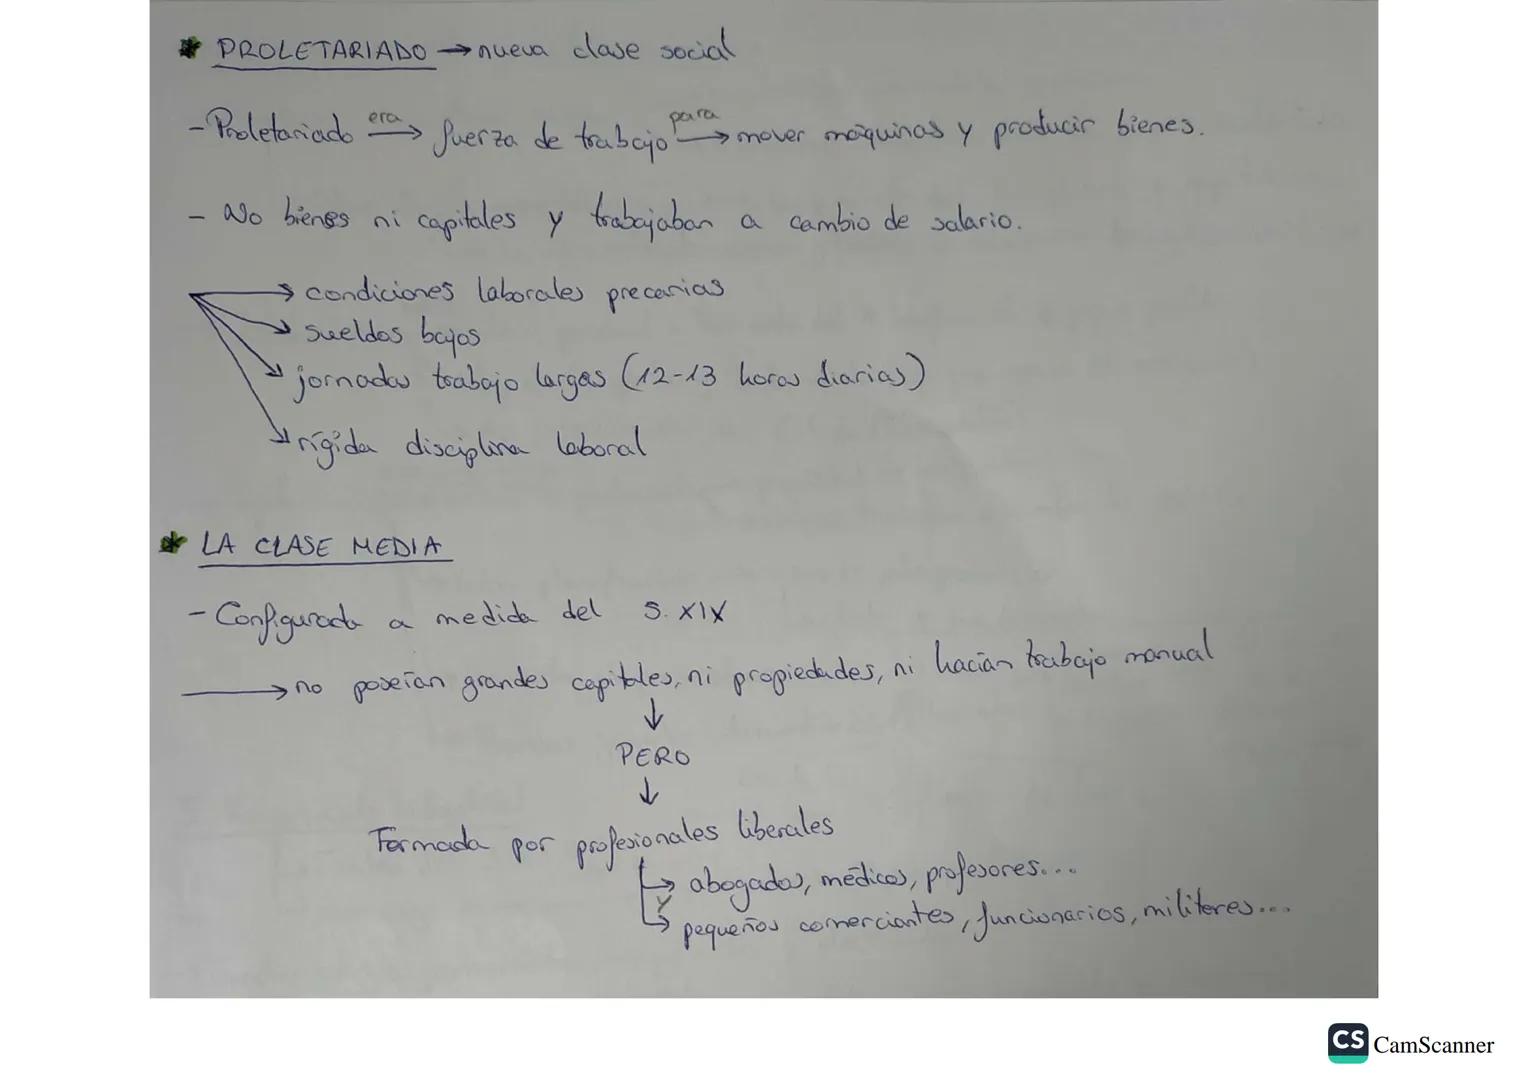 * PROLETARIADO → nueva clase social
- Proletariado era → fuerza de trabajo para → mover máquinas y producir bienes.
- No bienes ni capitales y trabajaban a cambio de salario.
→ condiciones laborales precarias
→ sueldos bajos
→ jornadas trabajo largas (12-13 horas diarias)
→ rígida disciplina laboral
* LA CLASE MEDIA
- Configurada a medida del S. XIX
→ no poseían grandes capitales, ni propiedades, ni hacían trabajo manual
↓
PERO
↓
Formada por profesionales liberales
→ abogados, médicos, profesores...
y
→ pequeños comerciantes, funcionarios, militares...
CS CamScanner